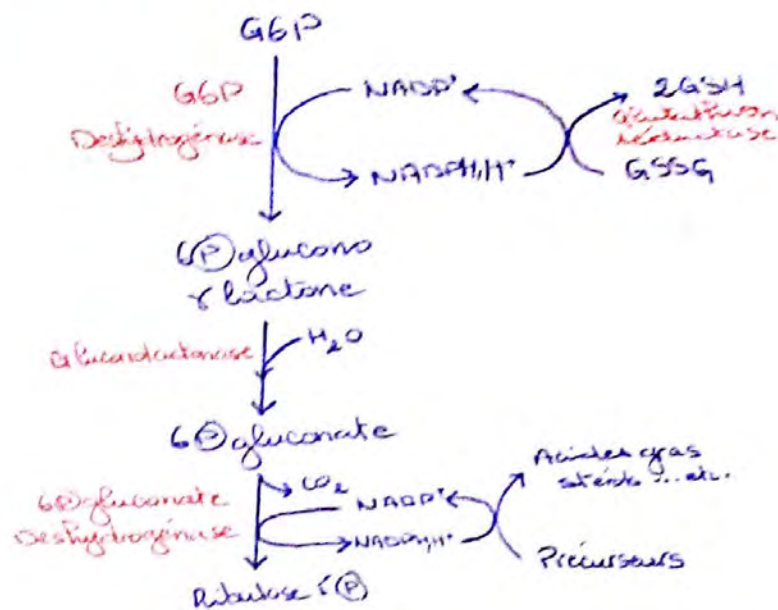 G6P
G6P
Deshydrogénase
NADP⁺
NADPH,H⁺
2GSH
Glutathion
réductase
GSSG
6(P) glucono
γ lactone
Gluconolactonase
H₂O
6(P) gluconate
6(P) gluconate
Deshydrogénase
CO₂
NADP⁺
NADPH,H⁺
Acides gras
stérols ... etc.
Précurseurs
Ribulose 5(P)